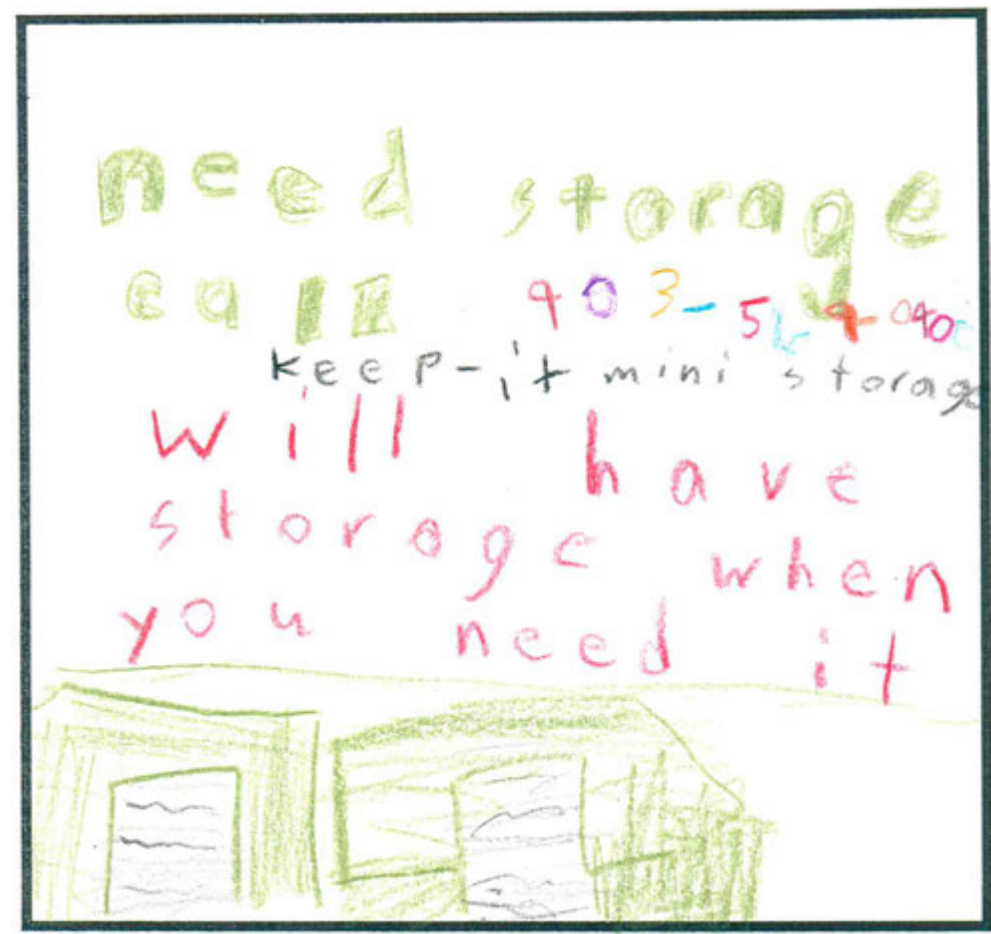 need storage
call 903-569-0900
Keep-it mini storage
will have
storage when
you need it